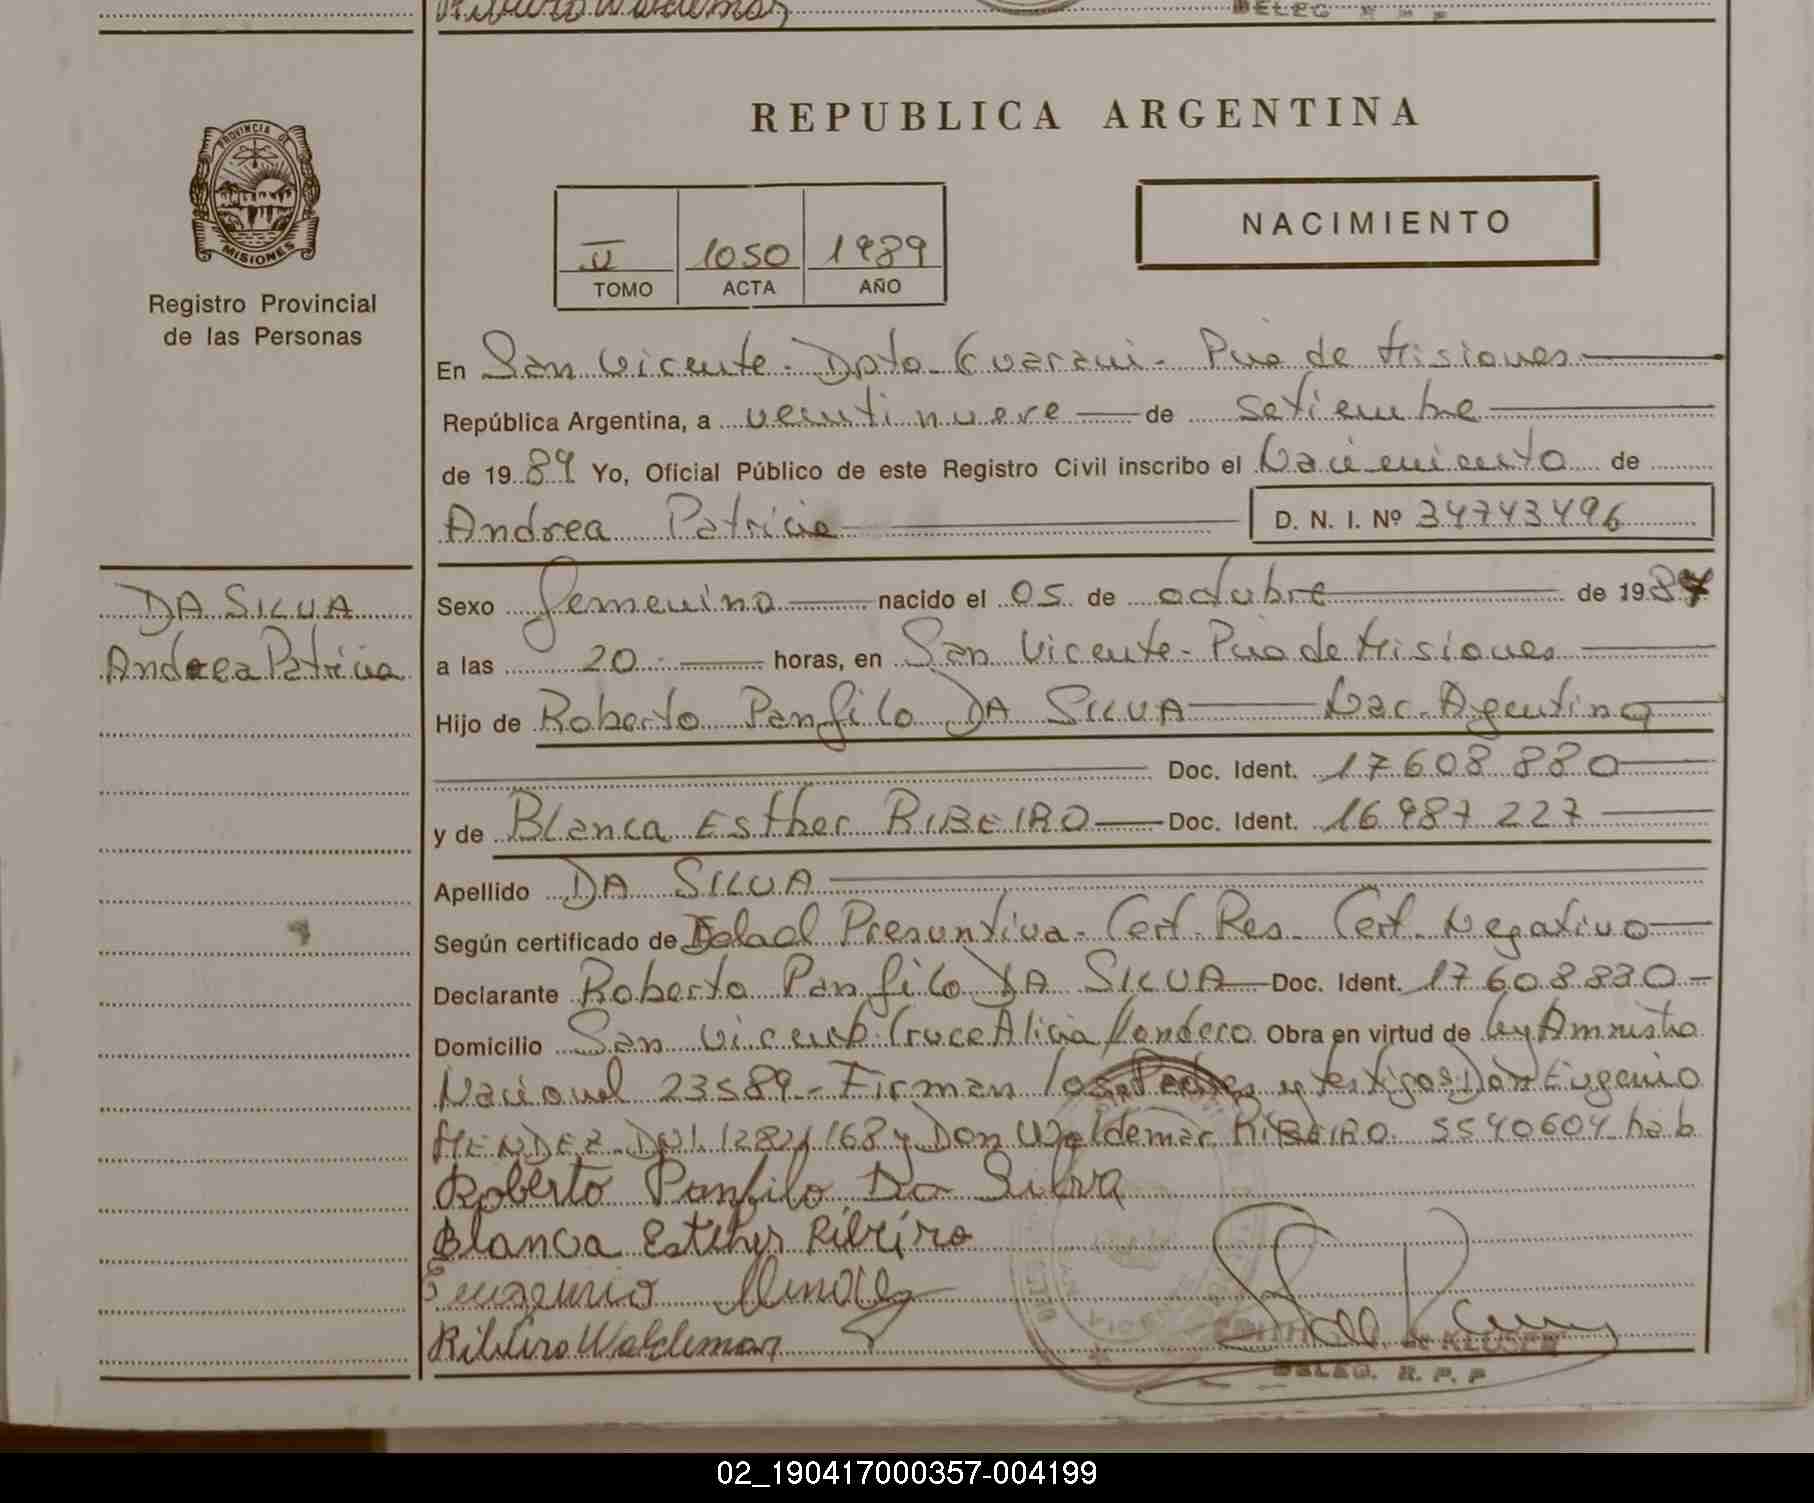 Ribeiro Waldemar
DELEG. R. P. P
REPUBLICA ARGENTINA
PROVINCIA DE
MISIONES
Registro Provincial
de las Personas
II 1050 1989
TOMO ACTA AÑO
NACIMIENTO
En San Vicente - Dpto. Guarani - Pcia de Misiones
República Argentina, a veintinueve de setiembre
de 1989 Yo, Oficial Público de este Registro Civil inscribo el Nacimiento de
Andrea Patricia
D. N. I. Nº 34743496
DA SILVA
Andrea Patricia
Sexo femenino nacido el 05 de octubre de 198
a las 20 horas, en San Vicente - Pcia de Misiones
Hijo de Roberto Panfilo DA SILVA Nac. Argentina
Doc. Ident. 17608880
y de Blanca Esther RIBEIRO Doc. Ident. 16987227
Apellido DA SILVA
Según certificado de Edad Presuntiva - Cert. Res. Cert. Negativo
Declarante Roberto Panfilo DA SILVA Doc. Ident. 17608880
Domicilio San Vicente Cruce Alicia Londero Obra en virtud de ley Amnistia
Nacional 23589 - Firman los Padres y testigos Don Eugenio
MENDEZ DNI 12821168 y Don Waldemar RIBEIRO 5540604 hab
Roberto Panfilo Da Silva
Blanca Esther Ribeiro
Eugenio
Ribeiro Waldemar
de KLUSER
DELEG. R. P. P
02_190417000357-004199